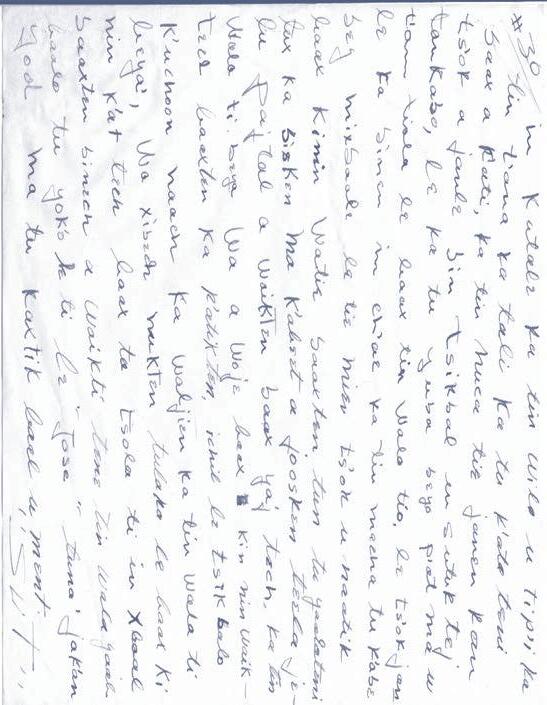 #30 in Kutale ka tin Wilo u tip'i, ka
tin tiana ka kali ka tu k'ata teni
baax a kati, ka tin nuca tie janen kan
tsok a janle Sin tsikbal en sutuk tej
tankabo, le ka tu yuba beyo p'at ma u
tian tiala le baax tin Walo tio, le tsokjan
le ka binen in ch'ae ka tin macha tu k'abe
bey mixbaale le tie mien ts'ok u naatik
baax kimin Watik baaxten tun tu yaalateni
tux ka bisken ma k'abeet a joosken teela je-
lu Pajtal a Waikten baax yaj tech, ka tin
Wala ti beya Wa a woje baax kin nin Waik-
tech baaxten ka p'atikten, ichil le tsikbalo
K'uchoon naach ka Waljien ka tin Wala ti
beya', Wa xibech nukten tulaka le baax ki
nin k'at tech baax ta tsola ti in Xbaal
baaxten binech a Waikti tene tin Wala yaih
baale tu yok'o k ti le "Jose" tuna' jak'an
yool ma tu kaxtik baal u ment